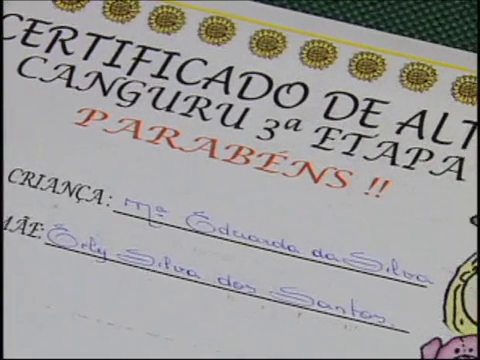 CERTIFICADO DE ALT
CANGURU 3ª ETAPA
PARABÉNS !!
CRIANÇA: Mª Eduarda da Silva
MÃE: Erly Silva dos Santos.